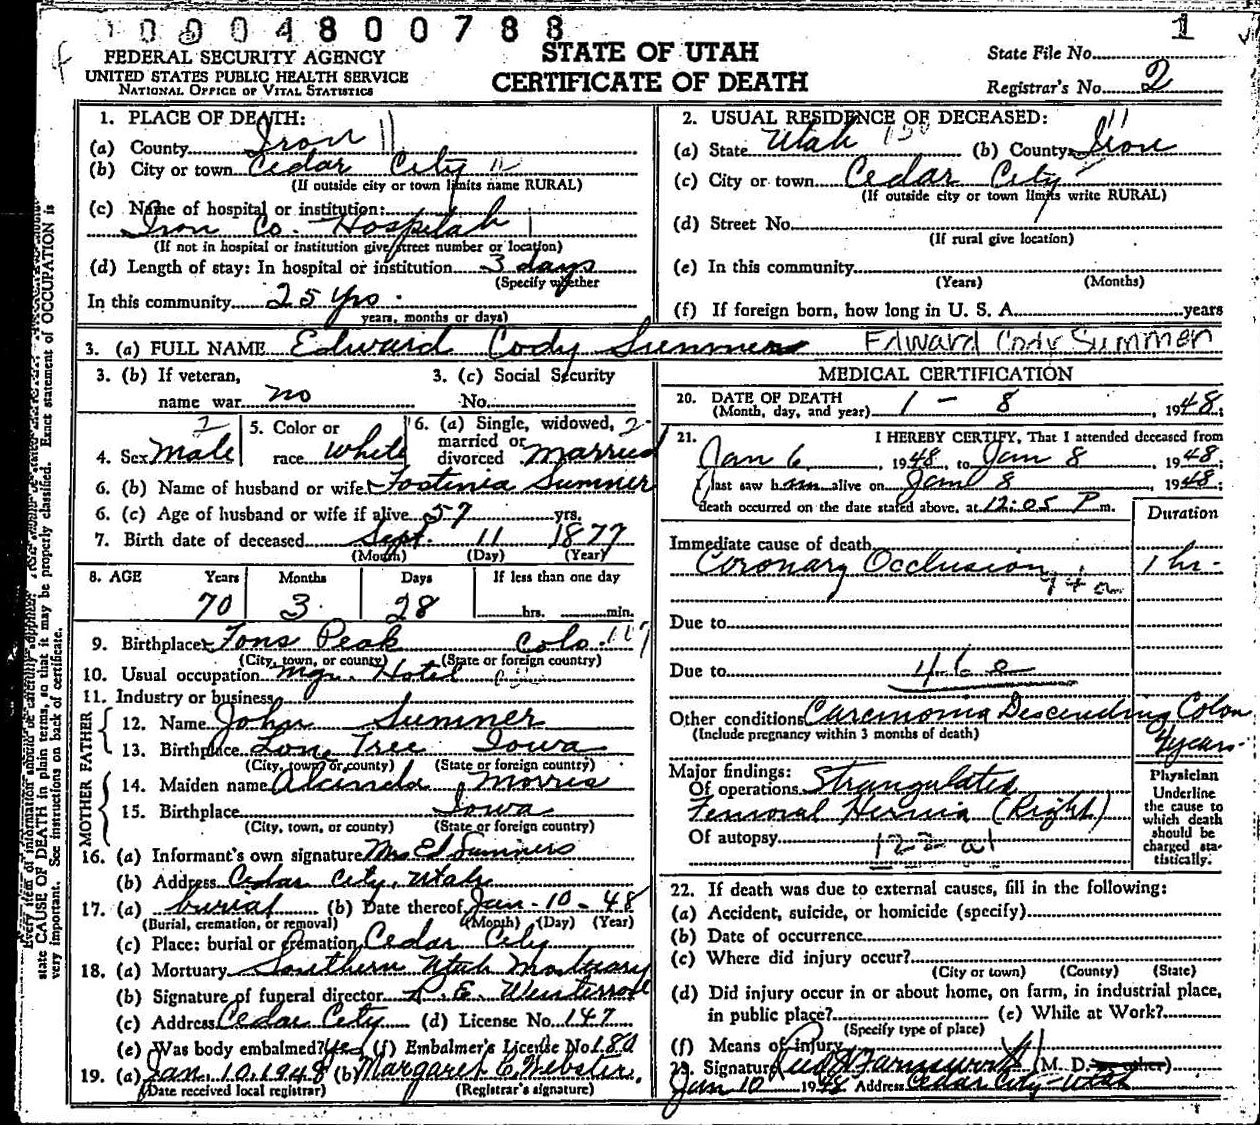 10004800788
1
FEDERAL SECURITY AGENCY
UNITED STATES PUBLIC HEALTH SERVICE
NATIONAL OFFICE OF VITAL STATISTICS
STATE OF UTAH
CERTIFICATE OF DEATH
State File No.
Registrar's No. 2
1. PLACE OF DEATH:
(a) County Iron 11
(b) City or town Cedar City
(If outside city or town limits name RURAL)
(c) Name of hospital or institution:
Iron Co. Hospital
(If not in hospital or institution give street number or location)
(d) Length of stay: In hospital or institution 3 days
(Specify whether
In this community 25 yrs.
years, months or days)
2. USUAL RESIDENCE OF DECEASED:
(a) State Utah (b) County Iron
(c) City or town Cedar City
(If outside city or town limits write RURAL)
(d) Street No.
(If rural give location)
(e) In this community
(Years) (Months)
(f) If foreign born, how long in U. S. A. years
3. (a) FULL NAME Edward Cody Summers Edward Cody Summer
3. (b) If veteran,
name war no
3. (c) Social Security
No.
4. Sex Male
5. Color or
race White
6. (a) Single, widowed,
married or
divorced Married
6. (b) Name of husband or wife Fostinia Sumner
6. (c) Age of husband or wife if alive 57 yrs.
7. Birth date of deceased Sept. 11 1877
(Month) (Day) (Year)
8. AGE Years Months Days If less than one day
70 3 28 hrs. min.
9. Birthplace Tons Peak Colo.
(City, town, or county) (State or foreign country)
10. Usual occupation Mgr. Hotel
11. Industry or business
FATHER
12. Name John Sumner
13. Birthplace Lone Tree Iowa
(City, town, or county) (State or foreign country)
MOTHER
14. Maiden name Alcinda Morris
15. Birthplace Iowa
(City, town, or county) (State or foreign country)
16. (a) Informant's own signature Mrs Ed Summers
(b) Address Cedar City, Utah
17. (a) burial (b) Date thereof Jan-10-48
(Burial, cremation, or removal) (Month) (Day) (Year)
(c) Place: burial or cremation Cedar City
18. (a) Mortuary Southern Utah Mortuary
(b) Signature of funeral director
(c) Address Cedar City (d) License No. 147
(e) Was body embalmed? Yes (f) Embalmer's License No. 180
19. (a) Jan. 10. 1948 (b) Margaret C. Webster.
(Date received local registrar) (Registrar's signature)
MEDICAL CERTIFICATION
20. DATE OF DEATH
(Month, day, and year) 1 - 8, 1948;
21. I HEREBY CERTIFY, That I attended deceased from
Jan 6, 1948, to Jan 8 1948;
I last saw him alive on Jan 8 1948;
death occurred on the date stated above, at 12:05 P m.
Duration
Immediate cause of death
Coronary Occlusion 1 hr.
94a
Due to
Due to 46e
Other conditions Carcinoma Descending Colon
(Include pregnancy within 3 months of death)
years
Major findings:
Of operations Strangulated
Femoral Hernia (Right)
Of autopsy
Physician
Underline
the cause to
which death
should be
charged sta-
tistically.
22. If death was due to external causes, fill in the following:
(a) Accident, suicide, or homicide (specify)
(b) Date of occurrence
(c) Where did injury occur?
(City or town) (County) (State)
(d) Did injury occur in or about home, on farm, in industrial place,
in public place? (e) While at Work?
(Specify type of place)
(f) Means of injury
23. Signature Farnsworth (M. D. or other)
Jan 10 1948 Address Cedar City-Utah
state CAUSE OF DEATH in plain terms, so that it may be properly classified. Exact statement of OCCUPATION is
very important. See instructions on back of certificate.